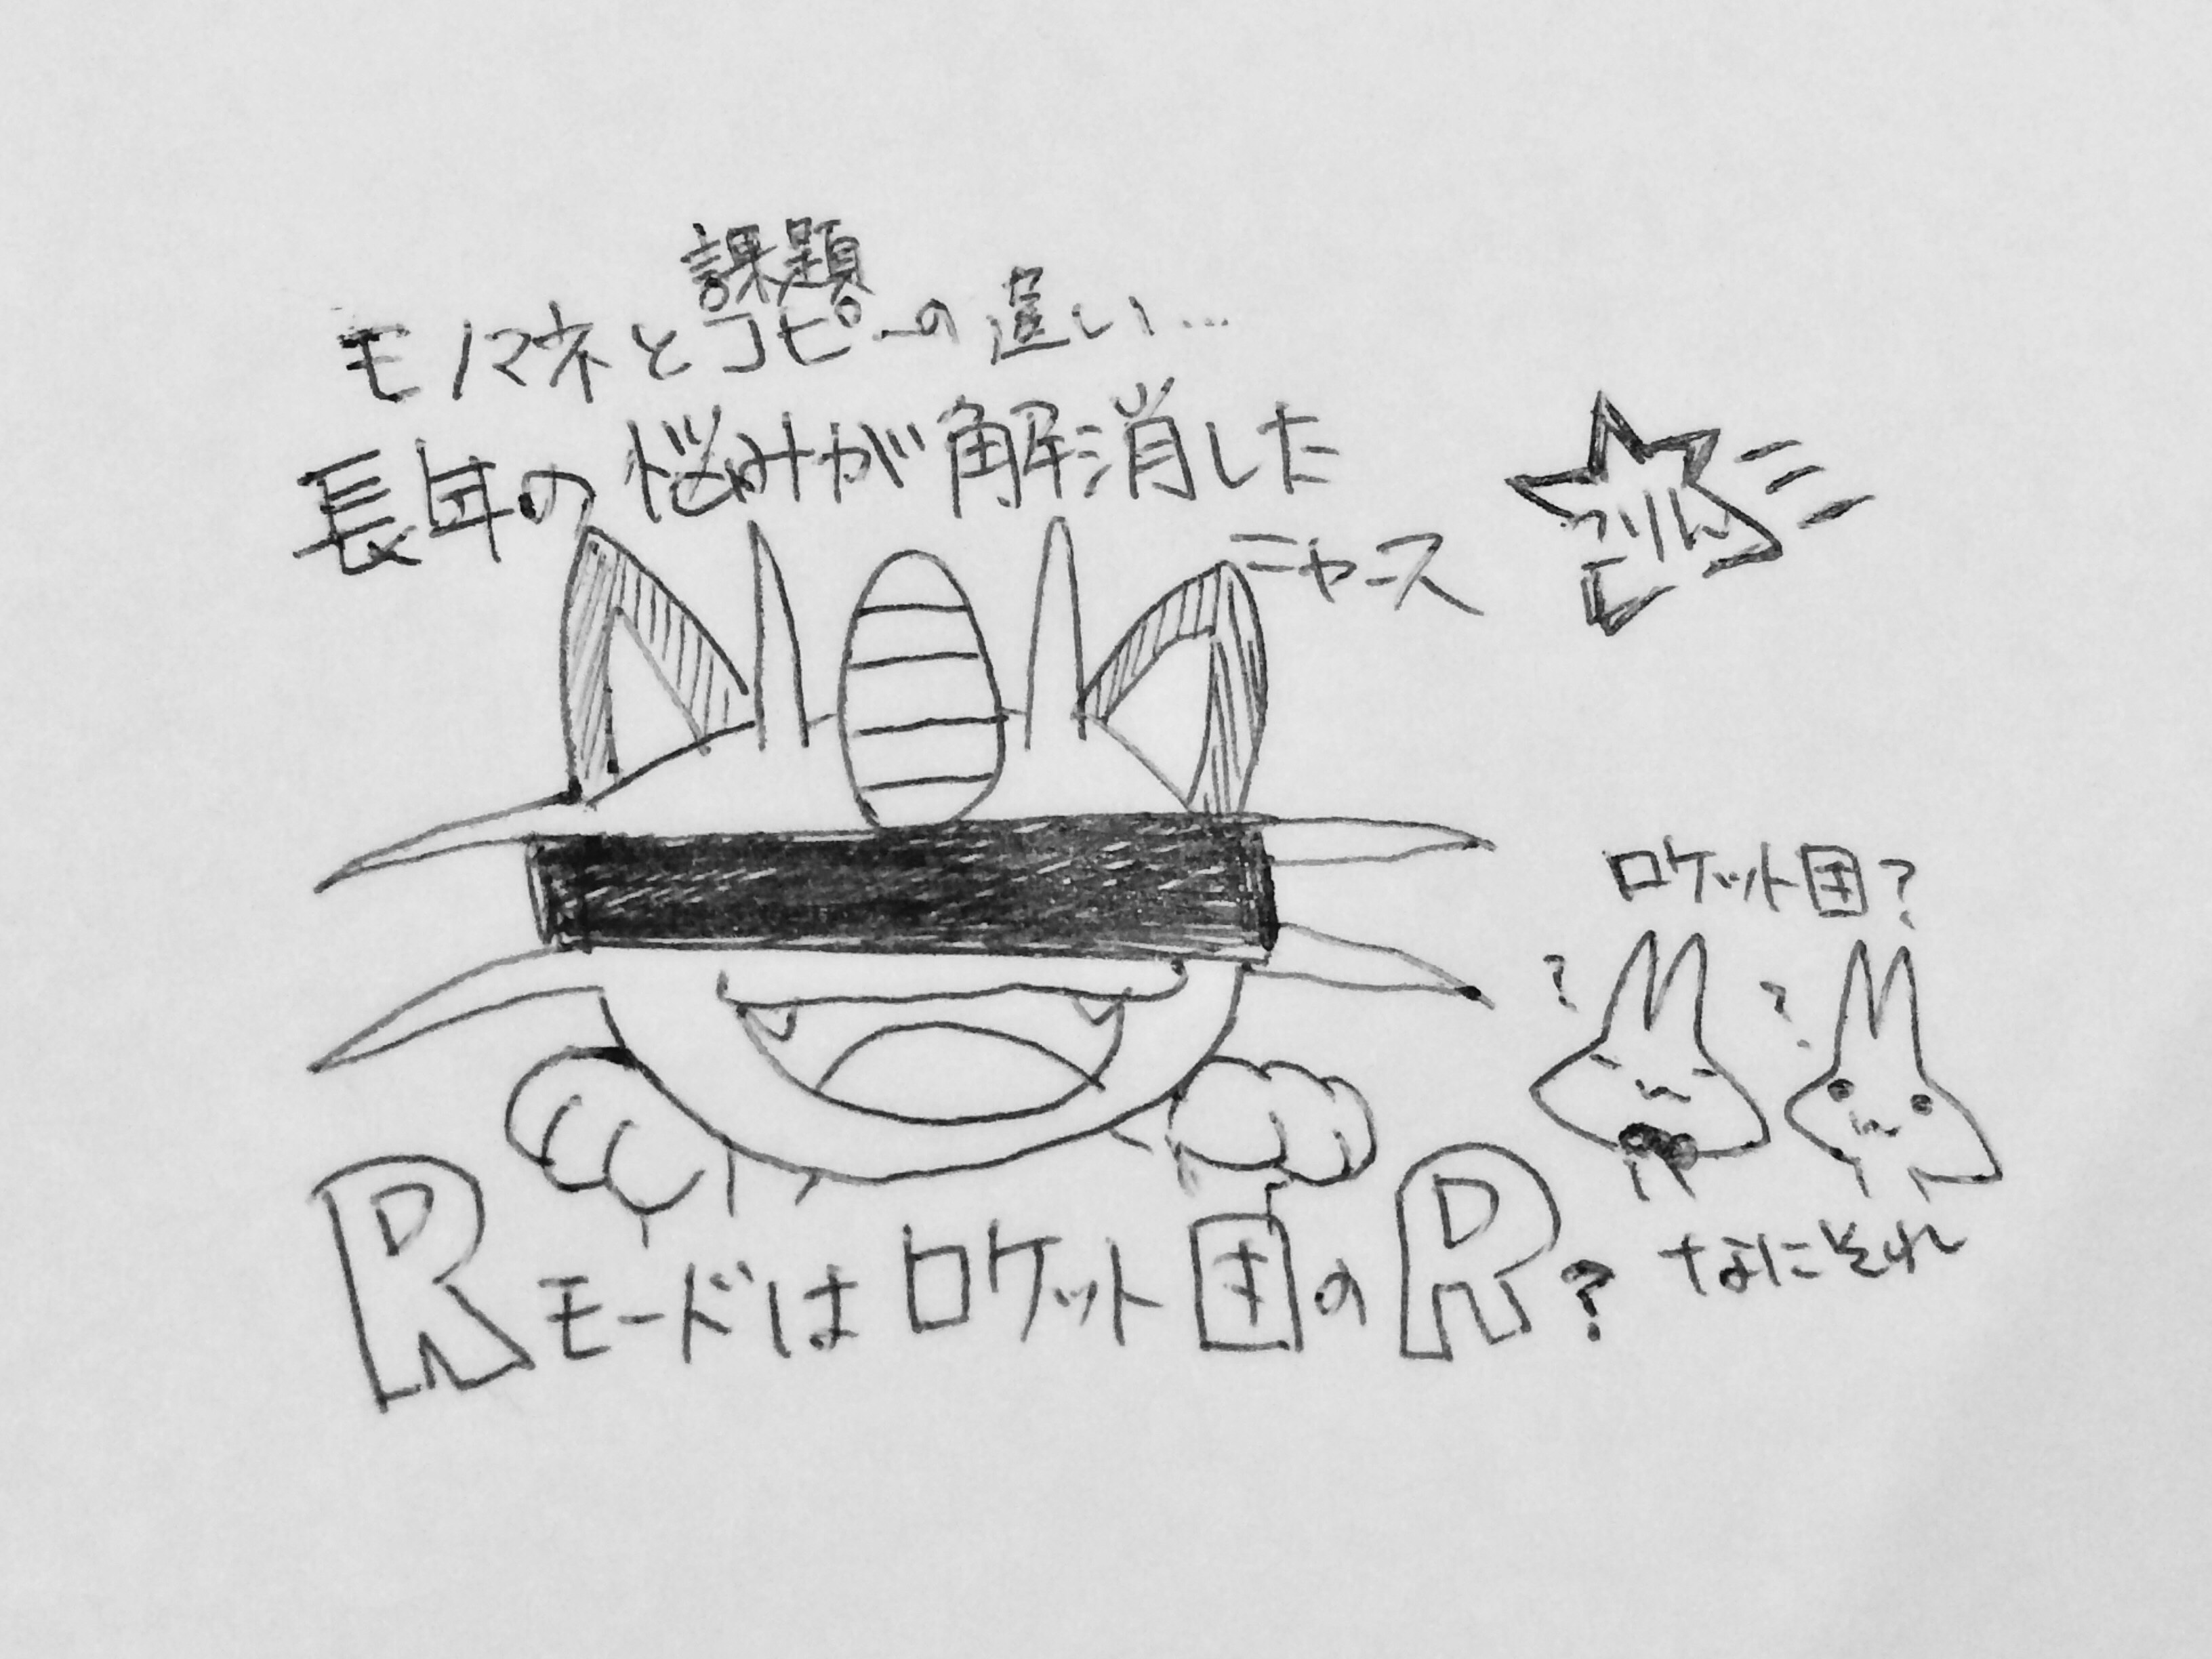 課題
モノマネとコピーの違い…
長年の悩みが解消した
ニャース
ロケット団?
? ?
なにそれ
RモードはロケットのR?